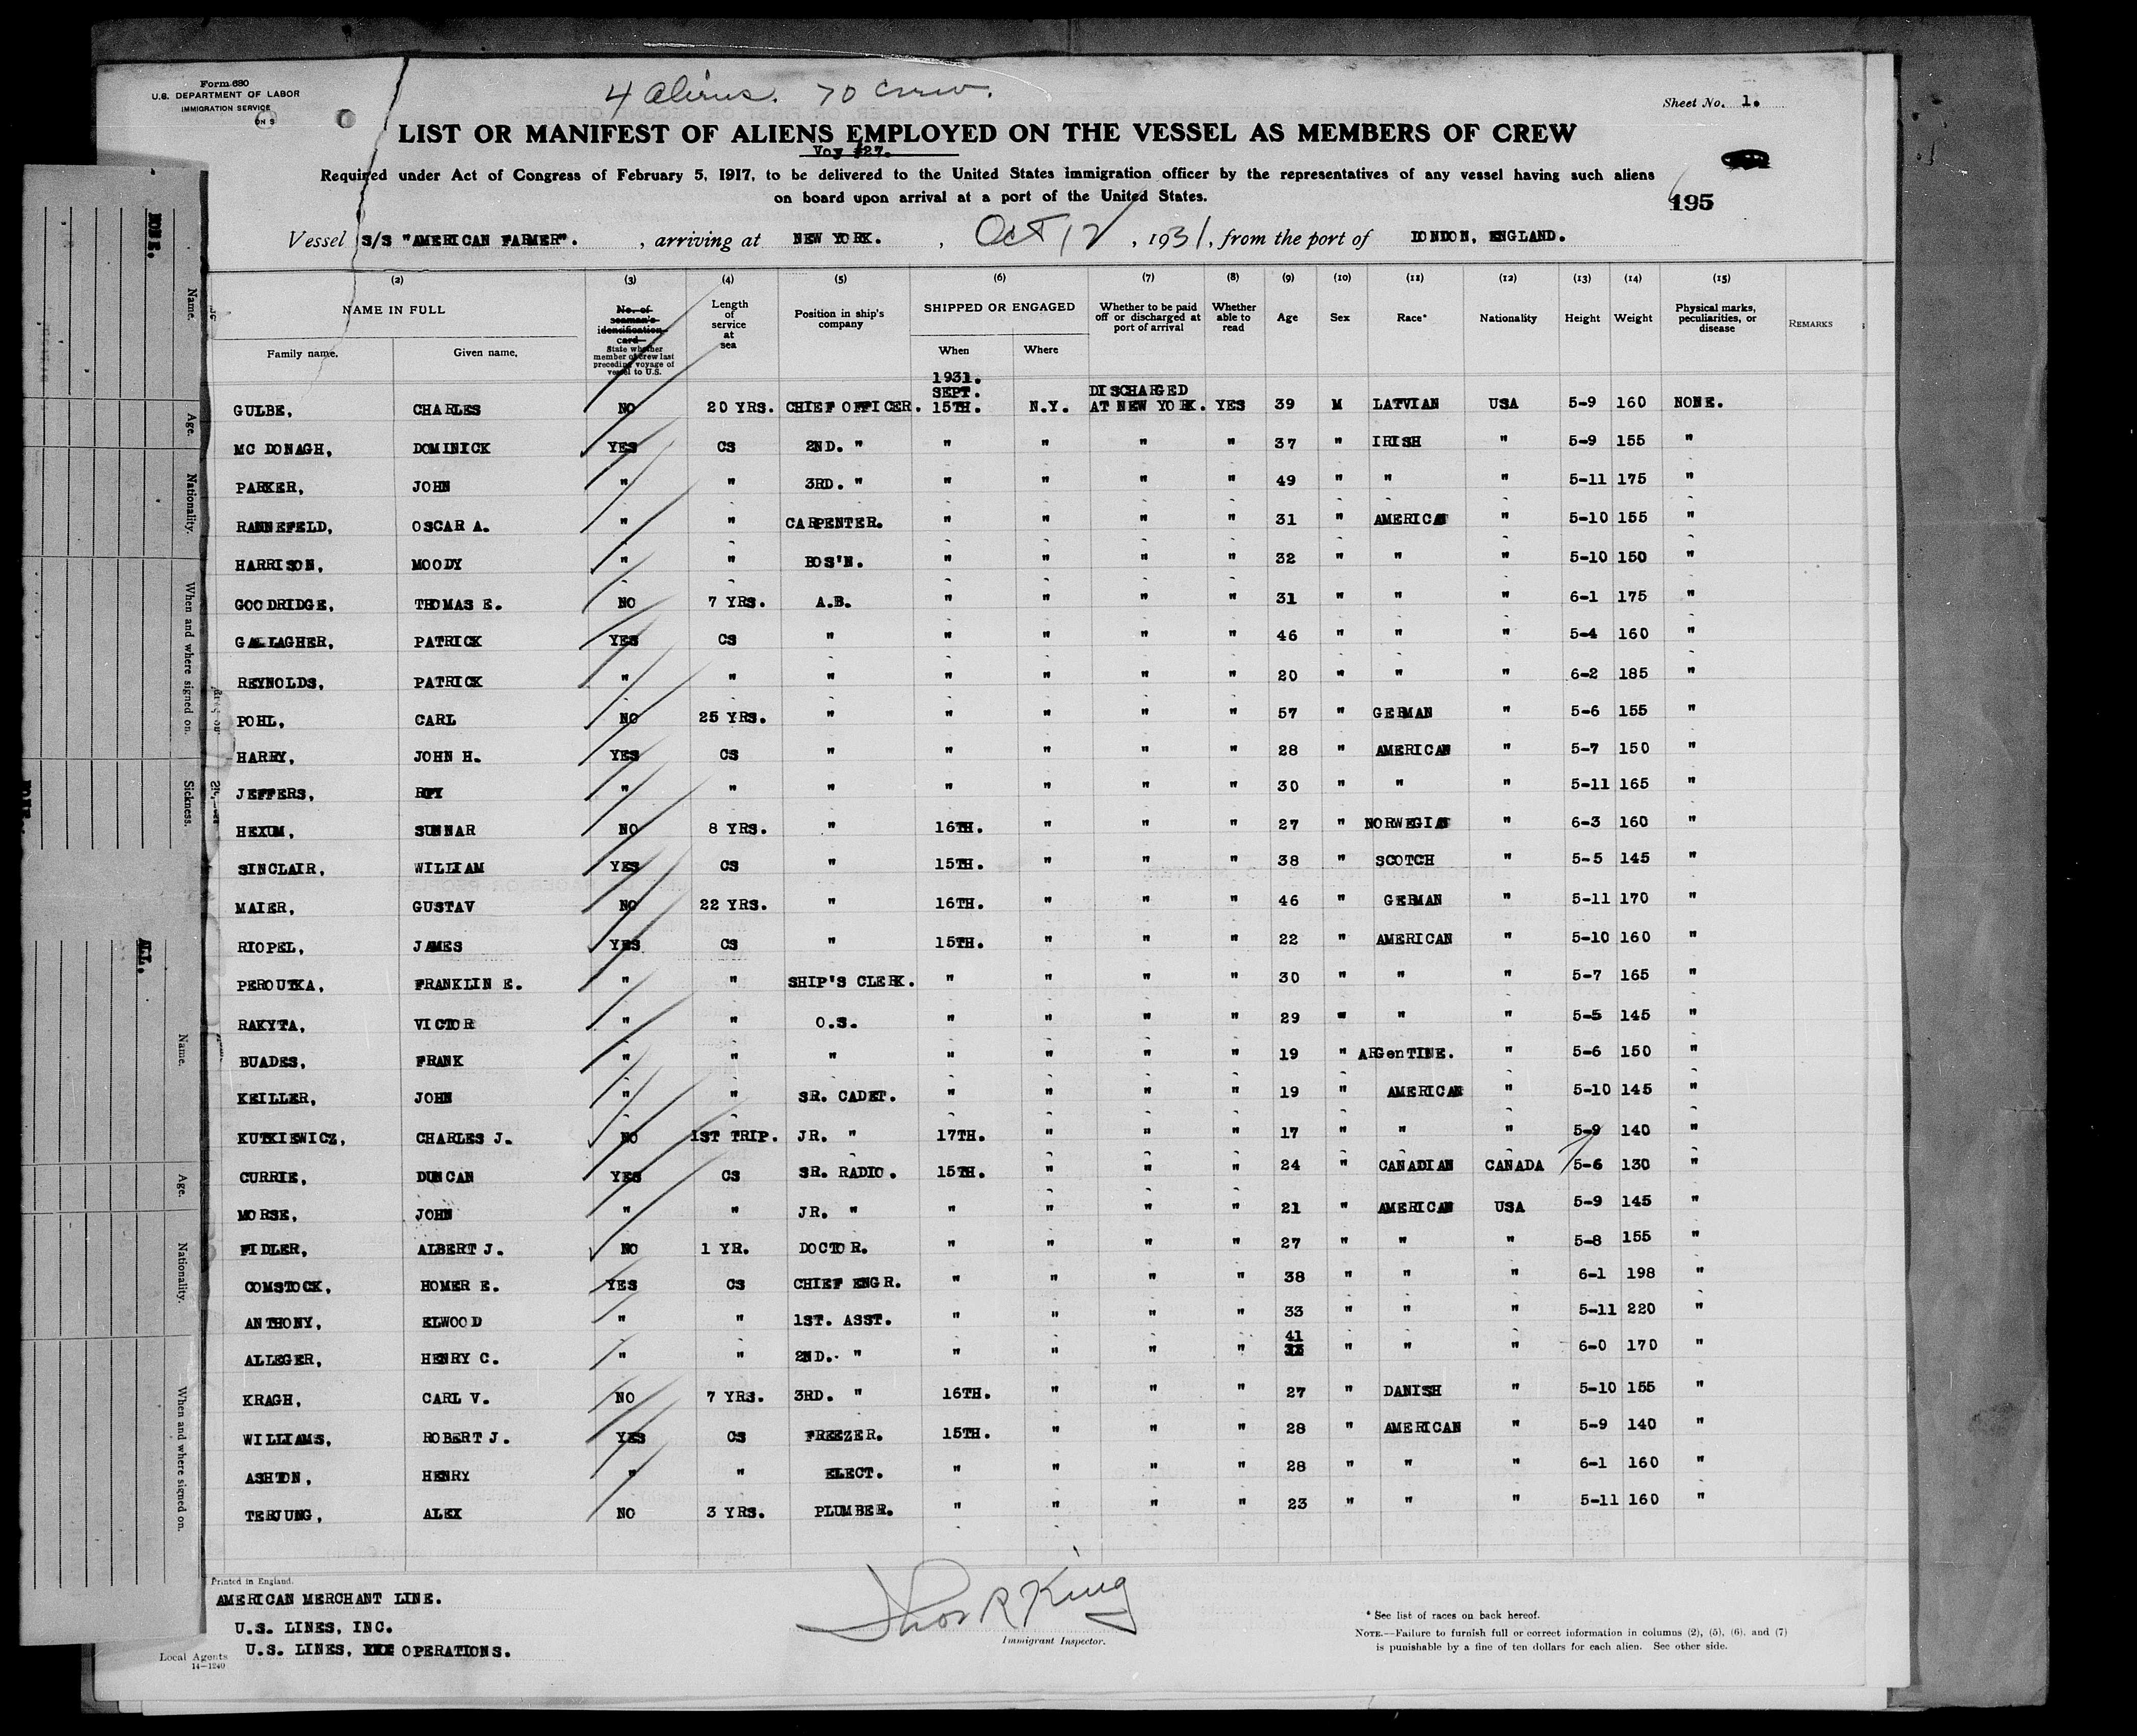 Form 680
U.S. DEPARTMENT OF LABOR
IMMIGRATION SERVICE
4 Aliens. 70 Crew.
Sheet No. 1.
LIST OR MANIFEST OF ALIENS EMPLOYED ON THE VESSEL AS MEMBERS OF CREW
Voy #27.
Required under Act of Congress of February 5, 1917, to be delivered to the United States immigration officer by the representatives of any vessel having such aliens
on board upon arrival at a port of the United States.
195
Vessel S/S "AMERICAN FARMER". , arriving at NEW YORK. , Oct 12 , 1931, from the port of LONDON, ENGLAND.
(2) (3) (4) (5) (6) (7) (8) (9) (10) (11) (12) (13) (14) (15)
NAME IN FULL
Family name. Given name.
No. of seaman's identification card
State whether member of crew last preceding voyage of vessel to U.S.
Length of service at sea
Position in ship's company
SHIPPED OR ENGAGED
When Where
Whether to be paid off or discharged at port of arrival
Whether able to read
Age
Sex
Race*
Nationality
Height
Weight
Physical marks, peculiarities, or disease
REMARKS
1931.
SEPT. DISCHARGED
GULBE, CHARLES NO 20 YRS. CHIEF OFFICER. 15TH. N.Y. AT NEW YORK. YES 39 M LATVIAN USA 5-9 160 NONE.
MC DONAGH, DOMINICK YES CS 2ND. " " " " " 37 " IRISH " 5-9 155 "
PARKER, JOHN " " 3RD. " " " " " 49 " " " 5-11 175 "
RANNEFELD, OSCAR A. " " CARPENTER. " " " " 31 " AMERICAN " 5-10 155 "
HARRISON, MOODY " " BOS'N. " " " " 32 " " " 5-10 150 "
GOODRIDGE, THOMAS E. NO 7 YRS. A.B. " " " " 31 " " " 6-1 175 "
GALLAGHER, PATRICK YES CS " " " " " 46 " " " 5-4 160 "
REYNOLDS, PATRICK " " " " " " " 20 " " " 6-2 185 "
POHL, CARL NO 25 YRS. " " " " " 57 " GERMAN " 5-6 155 "
HARRY, JOHN H. YES CS " " " " " 28 " AMERICAN " 5-7 150 "
JEFFERS, ROY " " " " " " " 30 " " " 5-11 165 "
HEXUM, SUNNAR NO 8 YRS. " 16TH. " " " 27 " NORWEGIAN " 6-3 160 "
SINCLAIR, WILLIAM YES CS " 15TH. " " " 38 " SCOTCH " 5-5 145 "
MAIER, GUSTAV NO 22 YRS. " 16TH. " " " 46 " GERMAN " 5-11 170 "
RIOPEL, JAMES YES CS " 15TH. " " " 22 " AMERICAN " 5-10 160 "
PEROUTKA, FRANKLIN E. " " SHIP'S CLERK. " " " " 30 " " " 5-7 165 "
RAKYTA, VICTOR " " O.S. " " " " 29 " " " 5-5 145 "
BUADES, FRANK " " " " " " " 19 " ARGenTINE. " 5-6 150 "
KEILLER, JOHN " " SR. CADET. " " " " 19 " AMERICAN " 5-10 145 "
KUTKIEWICZ, CHARLES J. NO 1ST TRIP. JR. " 17TH. " " " 17 " " " 5-9 140 "
CURRIE, DUNCAN YES CS SR. RADIO. 15TH. " " " 24 " CANADIAN CANADA 5-6 130 "
MORSE, JOHN " " JR. " " " " " 21 " AMERICAN USA 5-9 145 "
FIDLER, ALBERT J. NO 1 YR. DOCTOR. " " " " 27 " " " 5-8 155 "
COMSTOCK, HOMER E. YES CS CHIEF ENGR. " " " " 38 " " " 6-1 198 "
ANTHONY, ELWOOD " " 1ST. ASST. " " " " 33 " " " 5-11 220 "
ALLEGER, HENRY C. " " 2ND. " " " " " 41 " " " 6-0 170 "
KRAGH, CARL V. NO 7 YRS. 3RD. " 16TH. " " " 27 " DANISH " 5-10 155 "
WILLIAMS, ROBERT J. YES CS FREEZER. 15TH. " " " 28 " AMERICAN " 5-9 140 "
ASHTON, HENRY " " ELECT. " " " " 28 " " " 6-1 160 "
TERJUNG, ALEX NO 3 YRS. PLUMBER. " " " " 23 " " " 5-11 160 "
Printed in England.
AMERICAN MERCHANT LINE.
U.S. LINES, INC.
U.S. LINES, OPERATIONS.
Local Agents
14-1240
Thos R King
Immigrant Inspector.
* See list of races on back hereof.
NOTE.—Failure to furnish full or correct information in columns (2), (5), (6), and (7)
is punishable by a fine of ten dollars for each alien. See other side.
NONE.
Name.
Age.
Nationality.
When and where signed on.
Sickness.
ALL.
Name.
Age.
Nationality.
When and where signed on.